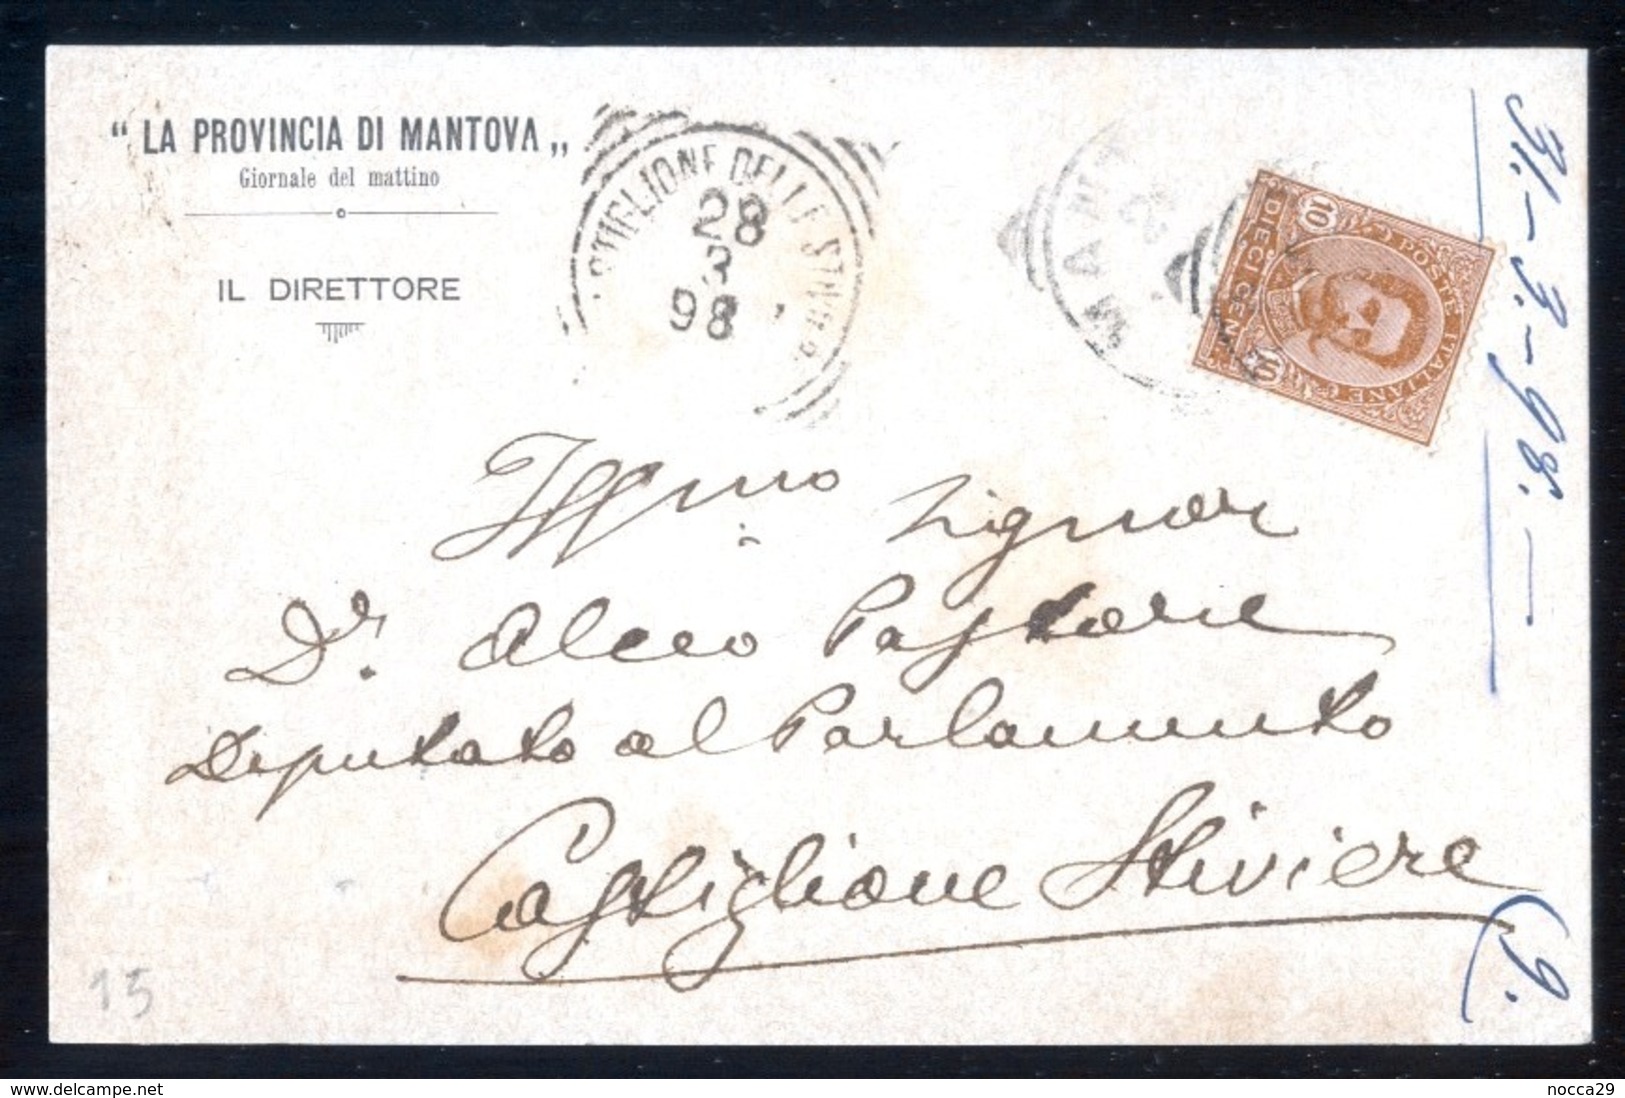 “ LA PROVINCIA DI MANTOVA „
Giornale del mattino
IL DIRETTORE
STIGLIONE DELLE STIVIERE
28
3
98
MANT
10
POSTE ITALIANE
DIECI CENT
10
31.-3.-98.-
Illmo Signor
Dr. Alceo Pastore
Deputato al Parlamento
Castiglione Stiviere
(9.
15
delcampe.net
nocca29